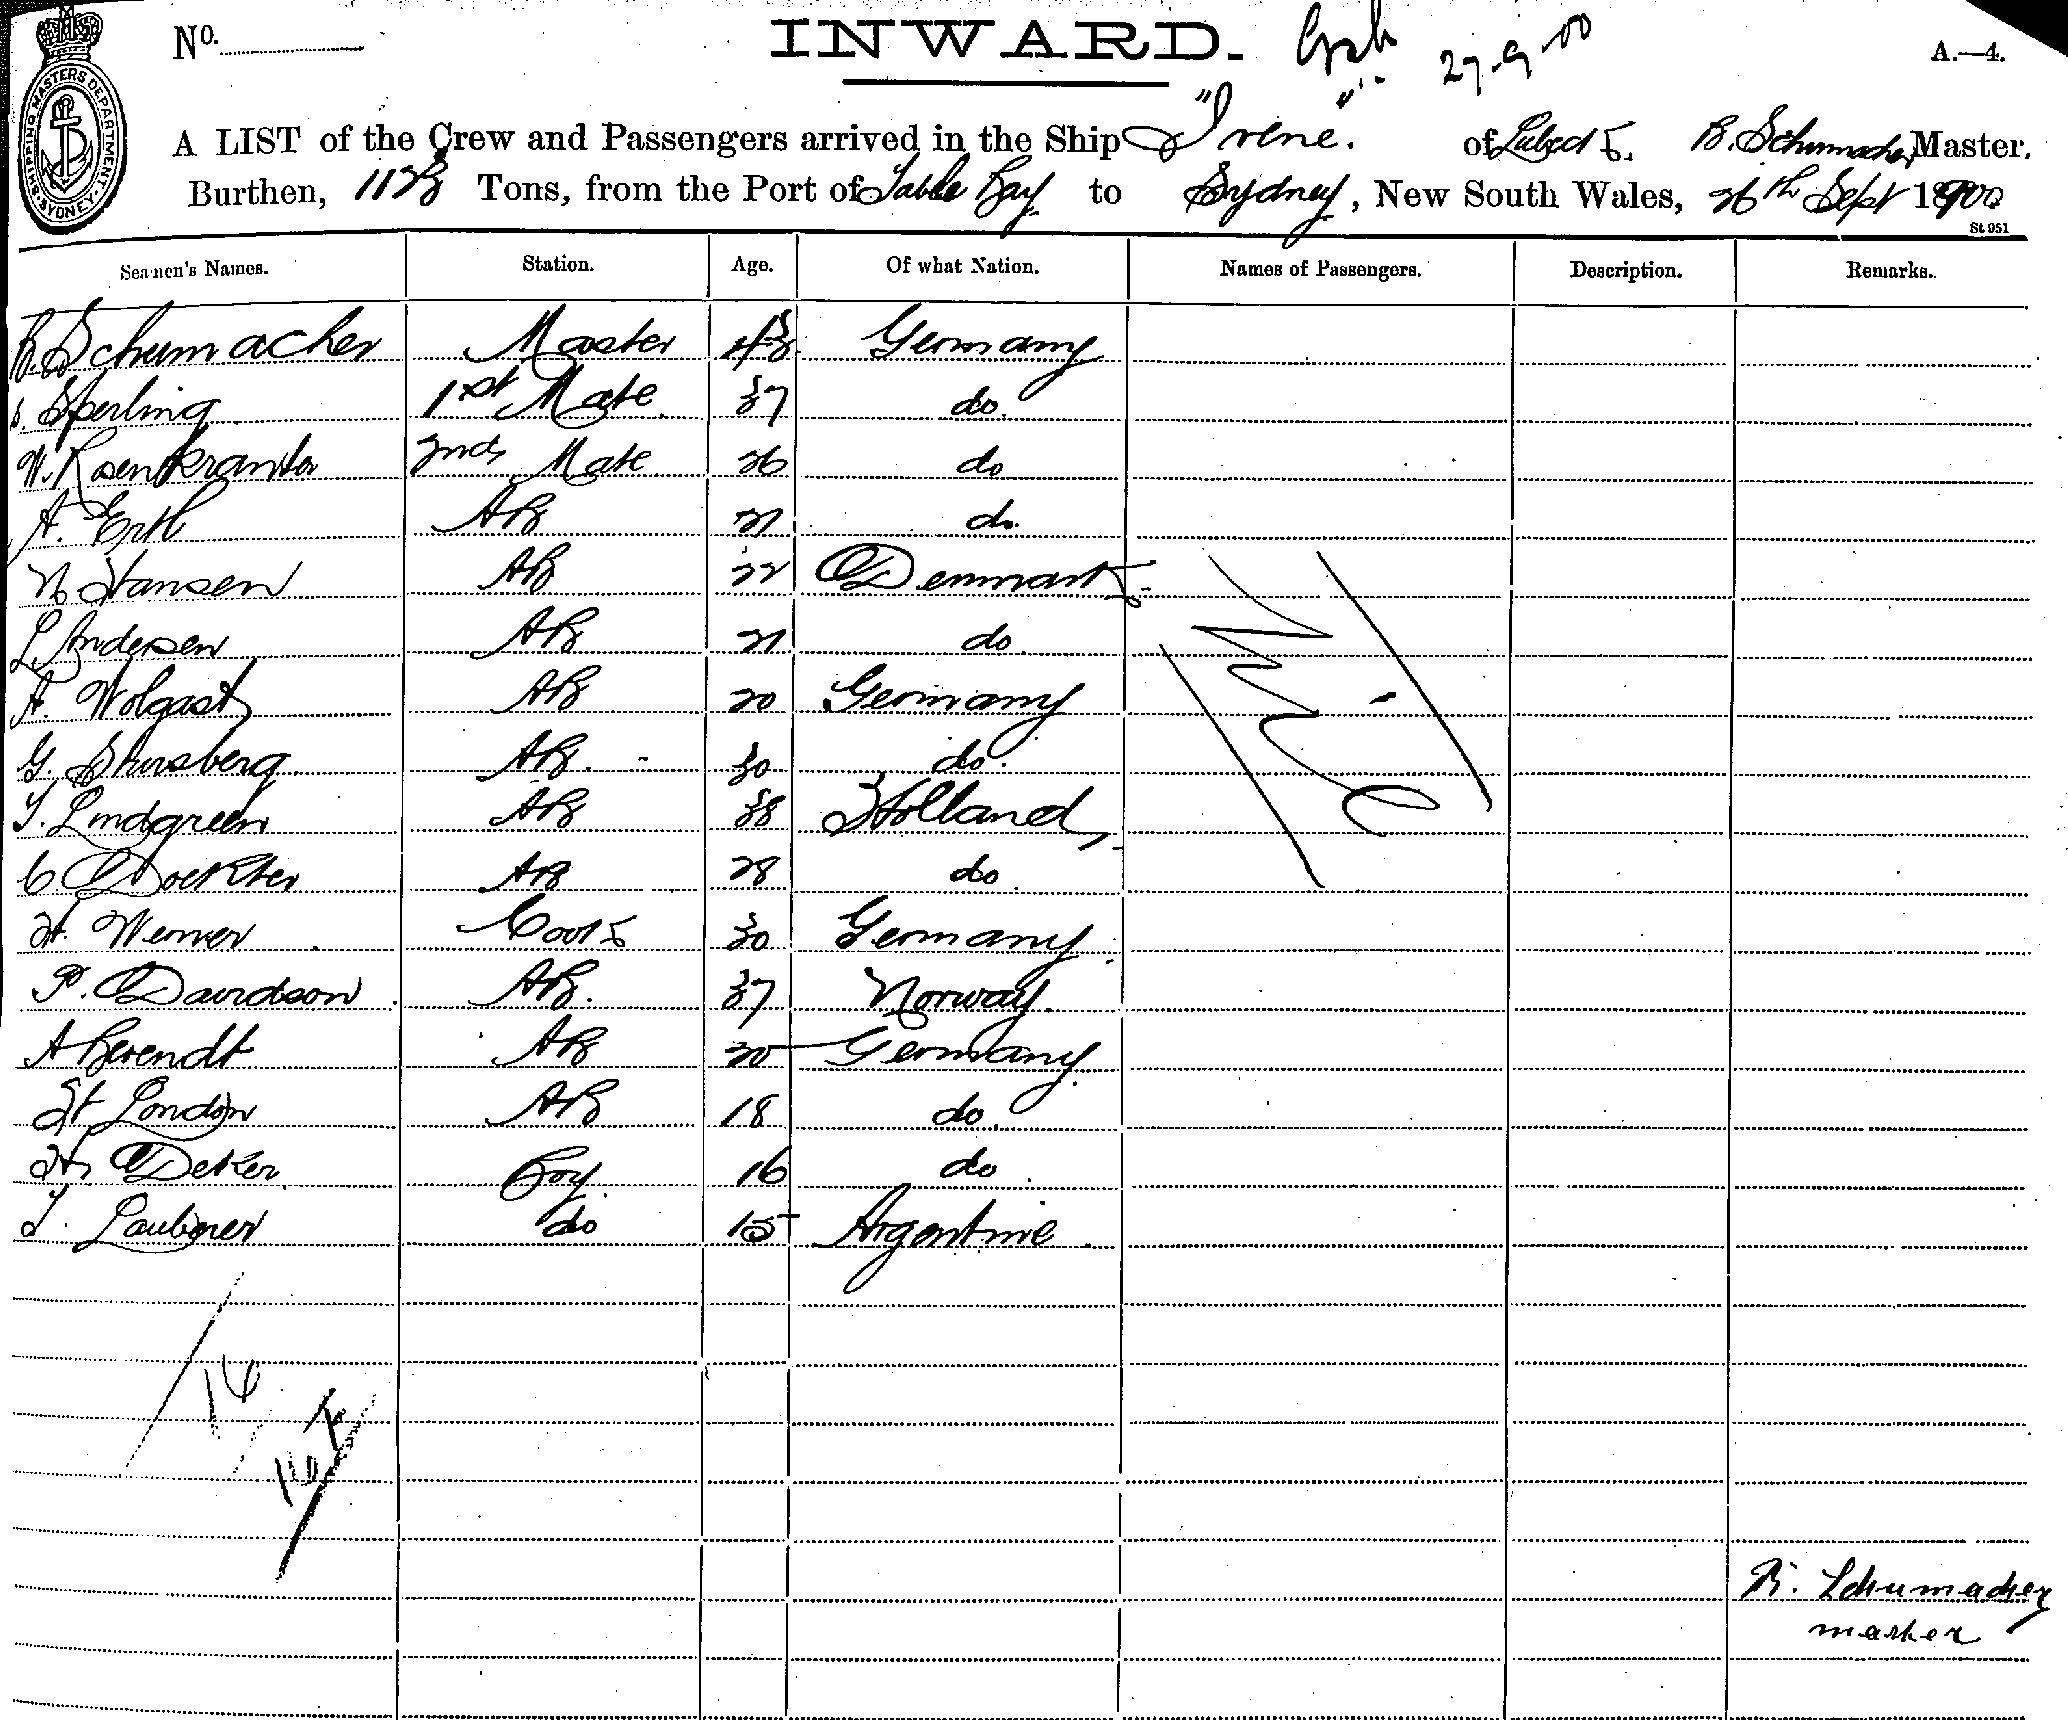 No.
INWARD.
27-9-00
A.—4.
SHIPPING MASTERS DEPARTMENT. SYDNEY.
A LIST of the Crew and Passengers arrived in the Ship "Irene" of Lubeck, B. Schumacher, Master.
Burthen, Tons, from the Port of Table Bay to Sydney, New South Wales, 26th Sept 1900
St. 951
Seamen's Names. Station. Age. Of what Nation. Names of Passengers. Description. Remarks.
B. Schumacher Master 43 Germany
Sperling 1st Mate 37 do.
W. Rosenkrantz 2nd Mate 26 do
A. Erth AB 21 do.
N Hansen AB 22 Denmark
L. Andersen AB 21 do
A. Wolgast AB 20 Germany
G. Stursberg AB. 30 do.
T. Lindgreen AB 38 Holland
C Dockter AB 28 do
H. Werner Cook 30 Germany
P. Davidson AB. 37 Norway.
A Berendt AB 20 Germany.
St London AB 18 do.
H. Deker Boy. 16 do
T. Laubner do 15 Argentine
Nil
16
16
B. Schumacher
master